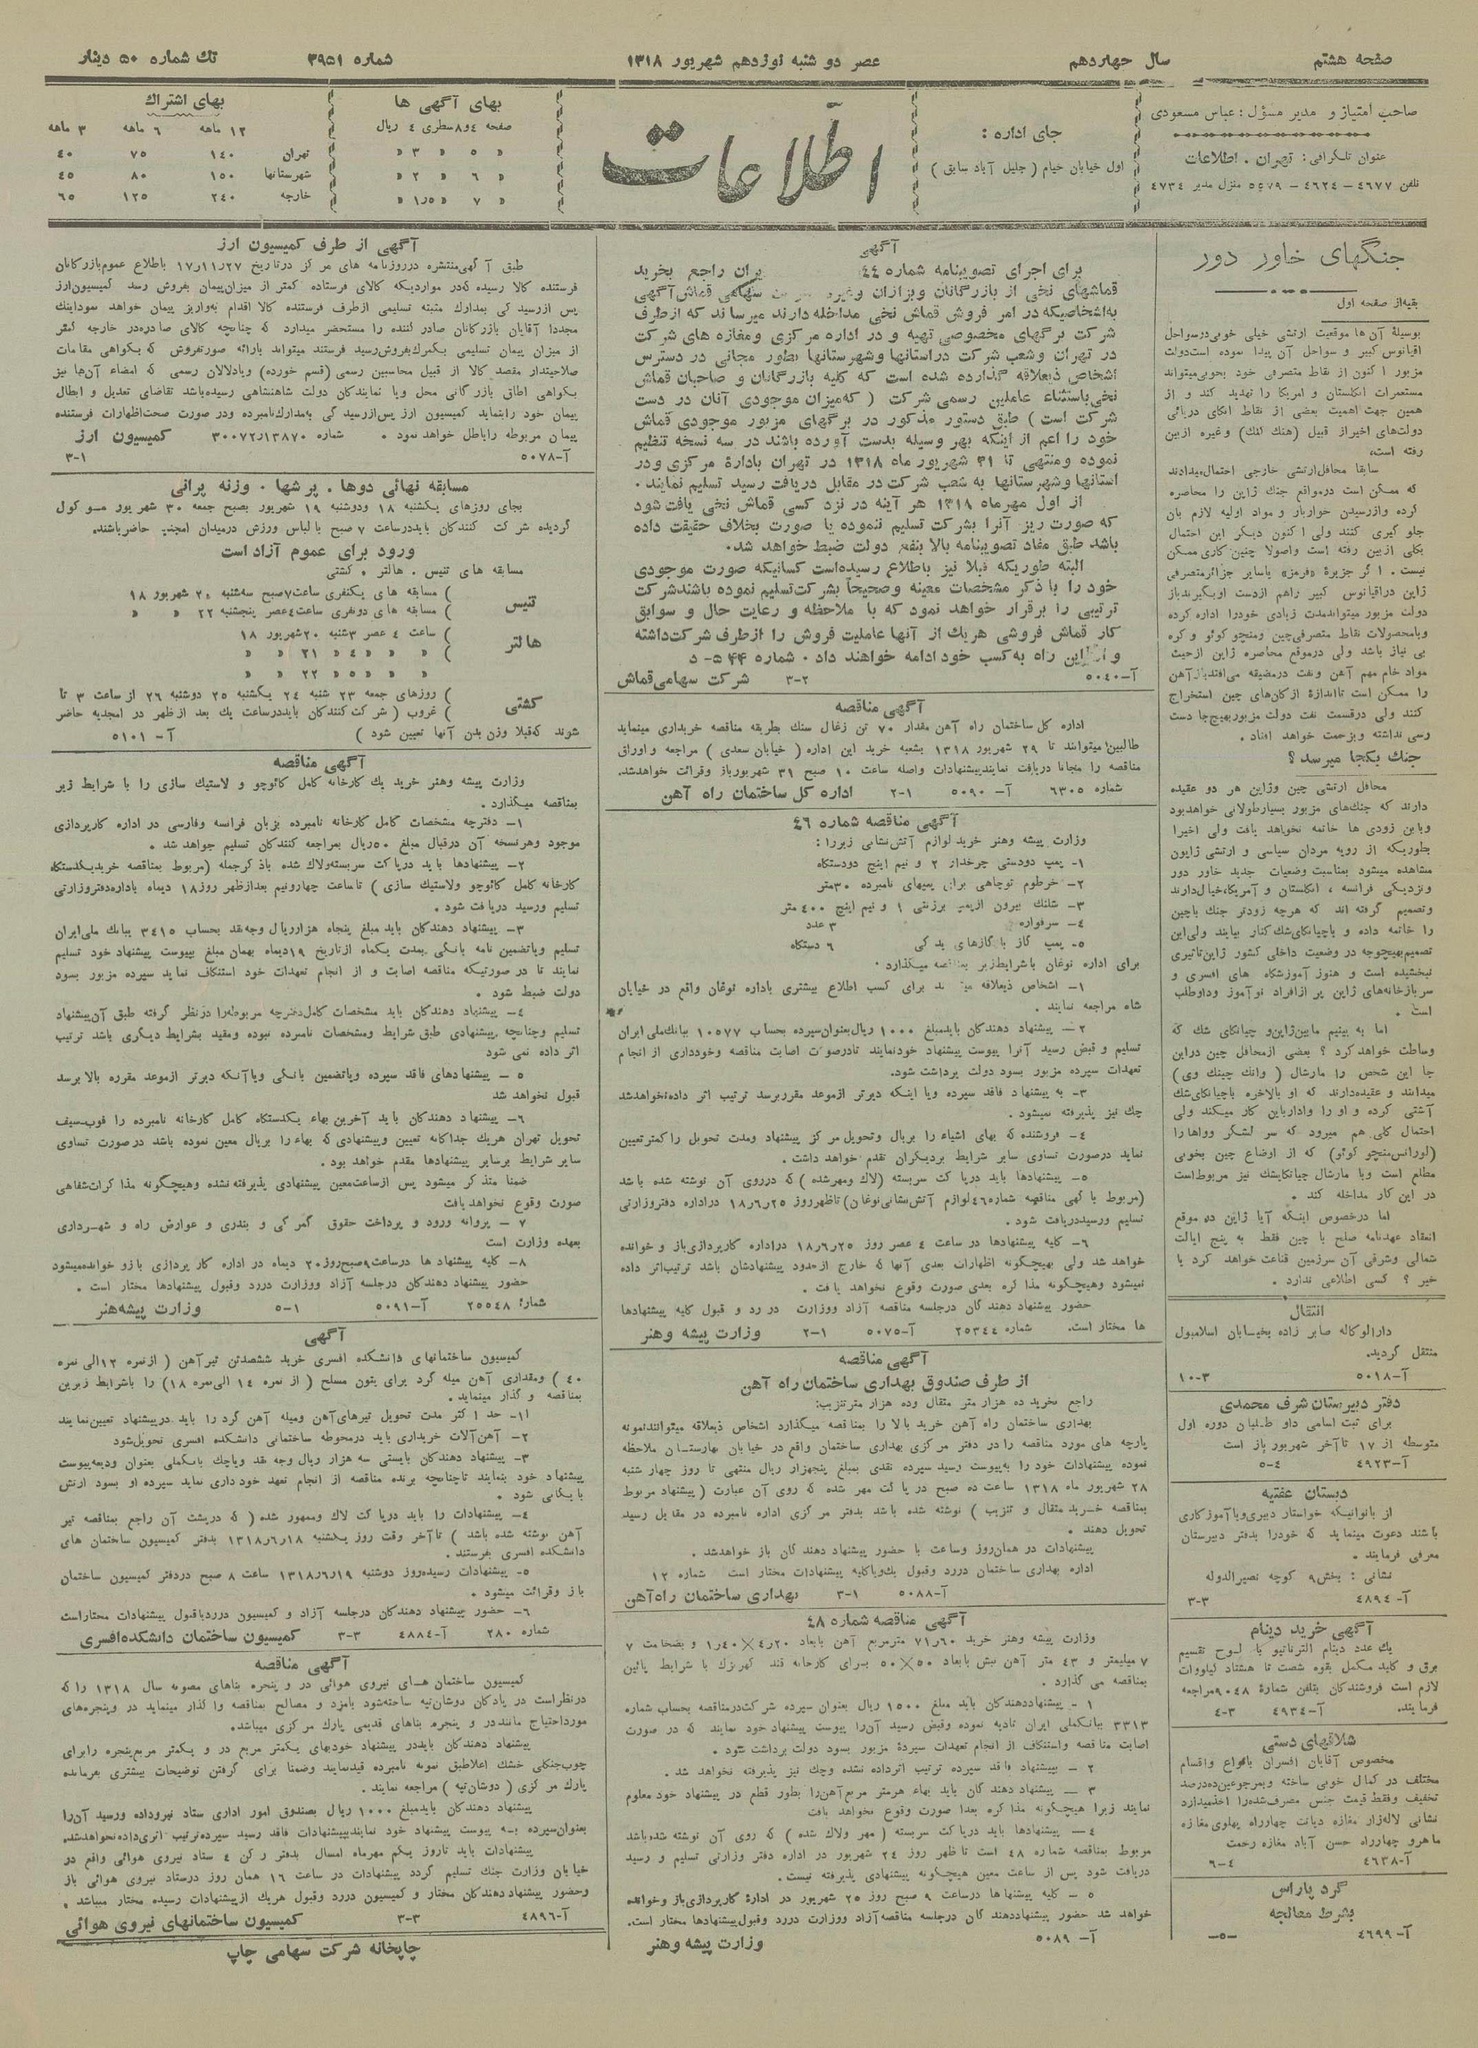 صفحه هشتم
سال چهاردهم
عصر دو شنبه نوزدهم شهریور ۱۳۱۸
شماره ۳۹۵۱
تك شماره ۵۰ دینار
صاحب امتیاز و مدیر مسؤل : عباس مسعودی
عنوان تلگرافی : تهران . اطلاعات
تلفن ٤٦٧٧ – ٤٦٢٤ – ٥٥٧٩ منزل مدیر ٤٧٣٤
جای اداره :
اول خیابان خیام ( جلیل آباد سابق )
اطلاعات
بهای آگهی ها
صفحه ٤و۸سطری ٤ ریال
« ٥ « ۳ «
« ٦ « ۲ «
« ۷ « ۱ر٥ «
بهای اشتراك
۱۲ ماهه ٦ ماهه ۳ ماهه
تهران ۱٤۰ ۷٥ ٤۰
شهرستانها ۱٥۰ ۸۰ ٤٥
خارجه ۲٤۰ ۱۲٥ ٦٥
جنگهای خاور دور
بقیه از صفحه اول
بوسیلهٔ آن ها موقعیت ارتشی خیلی خوبی درسواحل
اقیانوس کبیر و سواحل آن پیدا نموده است دولت
مزبور اکنون از نقاط متصرفی خود بخوبی میتواند
مستعمرات انگلستان و امریکا را تهدید کند و از
همین جهت اهمیت بعضی از نقاط اتکای دریائی
دولت‌های اخیر از قبیل (هنك كنك) وغیره ازبین
رفته است.
سابقا محافل ارتشی خارجی احتمال میدادند
که ممکن است درمواقع جنك ژاپن را محاصره
کرده وازرسیدن خواربار و مواد اولیه لازم بان
جلو گیری کنند ولی اکنون دیگر این احتمال
بکلی ازبین رفته است واصولا چنین کاری ممکن
نیست . اگر جزیرهٔ «فرمز» یاسایر جزائر متصرفی
ژاپن دراقیانوس کبیر راهم ازدست اوبگیرند باز
دولت مزبور میتواند مدت زیادی خودرا اداره کرده
وبامحصولات نقاط متصرفی چین ومنچو کوئو و کره
بی نیاز باشد ولی درموقع محاصره ژاپن ازحیث
مواد خام مهم آهن ونفت درمضیقه می‌افتد باز آهن
را ممکن است تااندازهٔ ازکان‌های چین استخراج
کنند ولی درقسمت نفت دولت مزبور بهیچ جا دست
رسی نداشته وبزحمت خواهد افتاد .
جنك بکجا میرسد ؟
محافل ارتشی چین وژاپن هر دو عقیده
دارند که جنك‌های مزبور بسیار طولانی خواهد بود
وباین زودی ها خاتمه نخواهد یافت ولی اخیرا
بطوریکه از رویه مردان سیاسی و ارتشی ژاپون
مشاهده میشود بمناسبت وضعیات جدید خاور دور
ونزدیکی فرانسه ، انگلستان و آمریکا ، خیال دارند
وتصمیم گرفته اند که هرچه زودتر جنك باچین
را خاتمه داده و باچیانکای‌شك کنار بیایند ولی این
تصمیم بهیچوجه در وضعیت داخلی کشور ژاپن تاثیری
نبخشیده است و هنوز آموزشگاه های افسری و
سربازخانه‌های ژاپن پر ازافراد نوآموز و داوطلب
است .
اما به بینیم مابین ژاپن و چیانکای شك که
وساطت خواهد کرد ؟ بعضی ازمحافل چین دراین
جا این شخص را مارشال ( وانك چینك وی )
میدانند و عقیده دارند که او بالاخره باچیانکای‌شك
آشتی کرده و او را وادار باین کار میکند ولی
احتمال کلی هم میرود که سر لشگر وواها را
(لورانس منچو کوئو) که از اوضاع چین بخوبی
مطلع است وبا مارشال چیانکایشك نیز مربوط است
در این کار مداخله کند .
اما درخصوص اینکه آیا ژاپن در موقع
انعقاد عهدنامه صلح با چین فقط به پنج ایالت
شمالی وشرقی آن سرزمین قناعت خواهد کرد یا
خیر ؟ کسی اطلاعی ندارد .
انتقال
دارالوکاله صابر زاده بخیابان اسلامبول
منتقل گردید.
آ–٥۰۱۸ ۱۰–۳
دفتر دبیرستان شرف محمدی
برای ثبت اسامی داو طلبان دوره اول
متوسطه از ۱۷ تا آخر شهریور باز است
آ–٤۹۲۳ ٥–٤
دبستان عفتیه
از بانوانیکه خواستار دبیری ویا آموزکاری
باشند دعوت مینماید که خودرا بدفتر دبیرستان
معرفی فرمایند .
نشانی : بخش۹ کوچه نصیرالدوله
آ– ٤۸۹٤ ۳–۳
آگهی خرید دینام
یك عدد دینام التر ناتیو با لوح تقسیم
برق و کابد مکمل بقوه شصت تا هشتاد کیلووات
لازم است فروشندگان بتلفن شمارهٔ ۹۰٤۸ مراجعه
فرمایند. آ–٤۹۳٤ ٤–۳
شلاقهای دستی
مخصوص آقایان افسران باانواع واقسام
مختلف در کمال خوبی ساخته وبمرجوعین ده درصد
تخفیف وفقط قیمت جنس مصرف شده را اخذ میدارد
نشانی لاله‌زار مغازه دیانت چهارراه پهلوی مغازه
ماهرو چهارراه حسن آباد مغازه رحمت
آ–٤٦۳۸ ٦–٤
گرد پاراس
بشرط معالجه
آ– ٤٦۹۹ –٥–
آگهی
برای اجرای تصویبنامه شماره ٤٤ یران راجع بخرید
قماشهای نخی از بازرگانان وبزازان وغیره سهامی قماش آگهی
به‌اشخاصیکه در امر فروش قماش نخی مداخله دارند میرساند که ازطرف
شرکت برگهای مخصوصی تهیه و در اداره مرکزی ومغازه های شرکت
در تهران وشعب شرکت دراستانها وشهرستانها بطور مجانی در دسترس
اشخاص ذیعلاقه گذارده شده است که کلیه بازرگانان و صاحبان قماش
نخی باستثناء عاملین رسمی شرکت ( که میزان موجودی آنان در دست
شرکت است ) طبق دستور مذکور در برگهای مزبور موجودی قماش
خود را اعم از اینکه بهر وسیله بدست آورده باشند در سه نسخه تنظیم
نموده ومنتهی تا ۳۱ شهریور ماه ۱۳۱۸ در تهران بادارهٔ مرکزی ودر
استانها وشهرستانها به شعب شرکت در مقابل دریافت رسید تسلیم نمایند .
از اول مهرماه ۱۳۱۸ هر آینه در نزد کسی قماش نخی یافت شود
که صورت ریز آنرا بشرکت تسلیم ننموده یا صورت بخلاف حقیقت داده
باشد طبق مفاد تصویبنامه بالا بنفع دولت ضبط خواهد شد.
البته طوریکه قبلا نیز باطلاع رسیده‌است کسانیکه صورت موجودی
خود را با ذکر مشخصات معینه وصحیحاً بشرکت تسلیم نموده باشند شرکت
ترتیبی را برقرار خواهد نمود که با ملاحظه و رعایت حال و سوابق
کار قماش فروشی هریك از آنها عاملیت فروش را ازطرف شرکت داشته
و از این راه به‌کسب خود ادامه خواهند داد . شماره ٥٤٤– د
آ–٥۰٤۰ ۳–۲ شرکت سهامی قماش
آگهی مناقصه
اداره کل ساختمان راه آهن مقدار ۷۰ تن زغال سنك بطریقه مناقصه خریداری مینماید
طالبین میتوانند تا ۲۹ شهریور ۱۳۱۸ بشعبه خرید این اداره ( خیابان سعدی ) مراجعه و اوراق
مناقصه را مجانا دریافت نمایند پیشنهادات واصله ساعت ۱۰ صبح ۳۱ شهریور باز وقرائت خواهد شد.
شماره ٦۳۰٥ آ– ٥۰۹۰ ۲–۱ اداره کل ساختمان راه آهن
آگهی مناقصه شماره ٤٦
وزارت پیشه وهنر خرید لوازم آتش‌نشانی زیر را :
۱– پمپ دودستی چرخدار ۲ و نیم اینچ دودستگاه
۲– خرطوم توچاهی برای پمپهای نامبرده ۳۰متر
۳– شلنك بیرون ازپمپ برزنتی ۱ و نیم اینچ ٤۰۰ متر
٤– سرفواره ۳ عدد
٥– پمپ گاز با گازهای یدکی ٦ دستگاه
برای اداره نوغان باشرایط زیر بمناقصه میگذارد .
۱– اشخاص ذیعلاقه ند برای کسب اطلاع بیشتری باداره نوغان واقع در خیابان
شاه مراجعه نمایند .
۲– پیشنهاد دهندگان بایدمبلغ ۱۰۰۰ ریال بعنوان سپرده بحساب ۱۰٥۷۷ ببانك ملی ایران
تسلیم و قبض رسید آنرا پیوست پیشنهاد خود نمایند تادرصورت اصابت مناقصه وخودداری از انجام
تعهدات سپرده مزبور بسود دولت برداشت شود.
۳– به پیشنهاد فاقد سپرده ویا اینکه دیرتر ازموعد مقرر برسد ترتیب اثر داده نخواهد شد
چك نیز پذیرفته نمیشود .
٤– فروشنده که بهای اشیاء را بریال وتحویل مرکز پیشنهاد ومدت تحویل را کمتر تعیین
نماید درصورت تساوی سایر شرایط بردیگران تقدم خواهد داشت .
٥– پیشنهادها باید درپاکت سربسته (لاك ومهر شده) که درروی آن نوشته شده باشد
(مربوط باگهی مناقصه شماره ٤٦ لوازم آتش نشانی نوغان) تاظهر روز ۱۸٫٦٫۲٥ دراداره دفتروزارتی
تسلیم ورسید دریافت شود .
٦– کلیه پیشنهادها در ساعت ٤ عصر روز ۱۸٫٦٫۲٥ دراداره کارپردازی باز و خوانده
خواهد شد ولی بهیچگونه اظهارات بعدی آنها که خارج ازحدود پیشنهادشان باشد ترتیب‌اثر داده
نمیشود وهیچگونه مذاکره بعدی صورت وقوع نخواهد یافت .
حضور پیشنهاد دهند گان درجلسه مناقصه آزاد ووزارت در رد و قبول کلیه پیشنهادها
ها مختار است. شماره ۲٥۳٤٤ آ–٥۰۷٥ ۲–۱ وزارت پیشه وهنر
آگهی مناقصه
از طرف صندوق بهداری ساختمان راه آهن
راجع بخرید ده هزار متر متقال وده هزار متر تنزیب :
بهداری ساختمان راه آهن خرید بالا را بمناقصه میگذارد اشخاص ذیعلاقه میتوانند نمونه
پارچه های مورد مناقصه را در دفتر مرکزی بهداری ساختمان واقع در خیابان بهارستان ملاحظه
نموده پیشنهادات خود را به‌پیوست رسید سپرده نقدی بمبلغ پنجهزار ریال منتهی تا روز چهار شنبه
۲۸ شهریور ماه ۱۳۱۸ ساعت ده صبح در پاکت مهر شده که روی آن عبارت ( پیشنهاد مربوط
بمناقصه خرید متقال و تنزیب ) نوشته شده باشد بدفتر مرکزی اداره نامبرده در مقابل رسید
تحویل دهند .
پیشنهادات در همان روز وساعت با حضور پیشنهاد دهند گان باز خواهد شد .
اداره بهداری ساختمان دررد وقبول یك ویاکلیه پیشنهادات مختار است شماره ۱۲
آ–٥۰۸۸ ۳–۱ بهداری ساختمان راه‌آهن
آگهی مناقصه شماره ٤۸
وزارت پیشه وهنر خرید ۷۱٫٦۰ مترمربع آهن بابعاد ٤٫۲۰×۱٫٤۰ و بضخامت ۷
۷ میلیمتر و ٤۳ متر آهن نبش بابعاد ٥۰×٥۰ برای کارخانه قند کهریزك با شرایط پائین
بمناقصه می گذارد .
۱ – پیشنهاددهندگان باید مبلغ ۱٥۰۰ ریال بعنوان سپرده شرکت درمناقصه بحساب شماره
۳۳۱۳ ببانکملی ایران تادیه نموده وقبض رسید آنرا پیوست پیشنهاد خود نمایند که در صورت
اصابت مناقصه واستنکاف از انجام تعهدات سپردهٔ مزبور بسود دولت برداشت شود .
۲ – بپیشنهاد فاقد سپرده ترتیب اثرداده نشده وچك نیز پذیرفته نخواهد شد .
۳ – پیشنهاد دهند گان باید بهاء هرمتر مربع آهن را بطور قطع در پیشنهاد خود معلوم
نمایند زیرا هیچگونه مذاکره بعدا صورت وقوع نخواهد یافت
٤ – پیشنهادها باید درپاکت سربسته ( مهر ولاك شده ) که روی آن نوشته شده باشد
مربوط بمناقصه شماره ٤۸ است تا ظهر روز ۲٤ شهریور در اداره دفتر وزارتی تسلیم و رسید
دریافت شود پس از ساعت معین هیچگونه پیشنهادی پذیرفته نیست.
٥ – کلیه پیشنهاد ها درساعت ۹ صبح روز ۲٥ شهریور در ادارهٔ کارپردازی باز وخوانده
خواهد شد حضور پیشنهاددهند گان درجلسه مناقصه آزاد ووزارت دررد وقبول پیشنهادها مختار است.
آ– ٥۰۸۹ وزارت پیشه وهنر
آگهی از طرف کمیسیون ارز
طبق آگهی منتشره درروزنامه های مرکز درتاریخ ۱۷٫۱۱٫۲۷ باطلاع عموم بازرگانان
فرستنده کالا رسیده که در مواردیکه کالای فرستاده کمتر از میزان پیمان بفروش رسد کمیسیون ارز
پس ازرسیدگی بمدارك مثبته تسلیمی ازطرف فرستنده کالا اقدام به‌واریز پیمان خواهد نمود اینك
مجددا آقایان بازرگانان صادر کننده را مستحضر میدارد که چنانچه کالای صادره در خارجه کمتر
از میزان پیمان تسلیمی بگمرك بفروش رسید فرستند میتواند باارائه صورتفروش که بگواهی مقامات
صلاحیتدار مقصد کالا از قبیل محاسبین رسمی (قسم خورده) ویادلالان رسمی که امضاء آن‌ها نیز
بگواهی اطاق بازرگانی محل ویا نمایندگان دولت شاهنشاهی رسیده باشد تقاضای تعدیل و ابطال
پیمان خود را بنماید کمیسیون ارز پس ازرسیدگی به‌مدارك نامبرده ودر صورت صحت اظهارات فرستنده
پیمان مربوطه را باطل خواهد نمود . شماره ۳۰۰۷۲٫۱۳۸۷۰ کمیسیون ارز
آ–٥۰۷۸ ۳–۱
مسابقه نهائی دوها . پرشها . وزنه پرانی
بجای روزهای یکشنبه ۱۸ ودوشنبه ۱۹ شهریور بصبح جمعه ۳۰ شهریور موکول
گردیده شرکت کنندگان باید درساعت ۷ صبح با لباس ورزش درمیدان امجدیه حاضر باشند.
ورود برای عموم آزاد است
مسابقه های تنیس . هالتر . کشتی
تنیس ) مسابقه های یکنفری ساعت۷صبح سه‌شنبه ۲۰ شهریور ۱۸
) مسابقه های دونفری ساعت٤عصر پنجشنبه ۲۲ « «
هالتر ) ساعت ٤ عصر ۳شنبه ۲۰شهریور ۱۸
« « « ٤« ۲۱ « «
« « ٥« ۲۲ « «
کشتی ) روزهای جمعه ۲۳ شنبه ۲٤ یکشنبه ۲٥ دوشنبه ۲٦ از ساعت ۳ تا
) غروب ( شرکت کنندگان باید درساعت یك بعد ازظهر در امجدیه حاضر
شوند که قبلا وزن بدن آنها تعیین شود ) آ– ٥۱۰۱
آگهی مناقصه
وزارت پیشه وهنر خرید یك کارخانه کامل کائوچو و لاستیك سازی را با شرایط زیر
بمناقصه میگذارد .
۱– دفترچه مشخصات کامل کارخانه نامبرده بزبان فرانسه وفارسی در اداره کارپردازی
موجود وهرنسخه آن درقبال مبلغ ٥۰ریال بمراجعه کنندگان تسلیم خواهد شد .
۲– پیشنهادها باید درپاکت سربسته ولاك شده باذکر جمله (مربوط بمناقصه خرید یکدستگاه
کارخانه کامل کائوچو ولاستیك سازی ) تا ساعت چهارونیم بعدازظهر روز۱۸ دیماه باداره دفتروزارتی
تسلیم ورسید دریافت شود .
۳– پیشنهاد دهندگان باید مبلغ پنجاه هزارریال وجه نقد بحساب ۳٤۱٥ ببانك ملی ایران
تسلیم ویاتضمین نامه بانکی بمدت یکماه ازتاریخ ۱۹دیماه بهمان مبلغ بپیوست پیشنهاد خود تسلیم
نمایند تا در صورتیکه مناقصه اصابت و از انجام تعهدات خود استنکاف نماید سپرده مزبور بسود
دولت ضبط شود .
٤– پیشنهاد دهندگان باید مشخصات کامل دفترچه مربوطه را درنظر گرفته طبق آن پیشنهاد
تسلیم وچنانچه پیشنهادی طبق شرایط ومشخصات نامبرده نبوده ومقید بشرایط دیگری باشد ترتیب
اثر داده نمی شود
٥ – پیشنهادهای فاقد سپرده ویاتضمین بانکی ویا آنکه دیرتر ازموعد مقرره بالا برسد
قبول نخواهد شد
٦– پیشنهاد دهندگان باید آخرین بهاء یکدستگاه کامل کارخانه نامبرده را فوب–سیف
تحویل تهران هریك جداگانه تعیین وپیشنهادی که بهاء را بریال معین نموده باشد درصورت تساوی
سایر شرایط برسایر پیشنهادها مقدم خواهد بود .
ضمنا متذکر میشود پس ازساعت معین پیشنهادی پذیرفته نشده وهیچگونه مذاکرات شفاهی
صورت وقوع نخواهد یافت
۷ – پروانه ورود و پرداخت حقوق گمرکی و بندری و عوارض راه و شهرداری
بعهده وزارت است
۸– کلیه پیشنهاد ها درساعت۹صبح روز۲۰ دیماه در اداره کار پردازی باز و خوانده میشود
حضور پیشنهاد دهندگان درجلسه آزاد ووزارت دررد وقبول پیشنهادها مختار است .
شماره ۲٥٥٤۸ آ–٥۰۹۱ ٥–۱ وزارت پیشه هنر
آگهی
کمیسیون ساختمانهای دانشکده افسری خرید ششصد تن تیر آهن ( از نمره ۱۲ الی نمره
٤۰ ) ومقداری آهن میله گرد برای بتون مسلح ( از نمره ۱٤ الی نمره ۱۸ ) را باشرایط زیر بن
بمناقصه و گذار مینماید .
۱– حد اکثر مدت تحویل تیرهای آهن ومیله آهن گرد را باید درپیشنهاد تعیین نمایند
۲– آهن آلات خریداری باید درمحوطه ساختمانی دانشکده افسری تحویل شود
۳– پیشنهاد دهندگان بایستی سه هزار ریال وجه نقد ویاچك بانکملی بعنوان ودیعه پیوست
پیشنهاد خود بنمایند تاچنانچه برنده مناقصه از انجام تعهد خود داری نماید سپرده او بسود ارتش
بایگانی شود .
٤– پیشنهادات را باید درپاکت لاك وممهور شده ( که درپشت آن راجع بمناقصه تیر
آهن نوشته شده باشد ) تا آخر وقت روز یکشنبه ۱۳۱۸٫٦٫۱۸ بدفتر کمیسیون ساختمان های
دانشکده افسری بفرستند .
٥– پیشنهادات رسیده روز دوشنبه ۱۳۱۸٫٦٫۱۹ ساعت ۸ صبح دردفتر کمیسیون ساختمان
باز وقرائت میشود .
٦– حضور پیشنهاد دهندگان درجلسه آزاد و کمیسیون دررد یا قبول پیشنهادات مختار است
شماره ۲۸۰ آ–٤۸۸٤ ۳–۳ کمیسیون ساختمان دانشکده افسری
آگهی مناقصه
کمیسیون ساختمان های نیروی هوائی در و پنجره بناهای مصوبه سال ۱۳۱۸ را که
درنظر است در پادگان دوشان‌تپه ساخته شود بامزد و مصالح بمناقصه واگذار مینماید در وپنجره‌های
مورد احتیاج مانند در و پنجره بناهای قدیمی پارك مرکزی میباشد.
پیشنهاد دهندگان باید در پیشنهاد خودبهای یکمتر مربع در و یکمتر مربع پنجره را برای
چوب‌جنگلی خشك اعلا طبق نمونه نامبرده قید نمایند وضمنا برای گرفتن توضیحات بیشتری بفرمانده
پارك مرکزی ( دوشان تپه ) مراجعه نمایند .
پیشنهاد دهندگان باید مبلغ ۱۰۰۰ ریال بصندوق امور اداری ستاد نیرو داده ورسید آن را
بعنوان سپرده به پیوست پیشنهاد خود نمایند پیشنهادات فاقد رسید سپرده ترتیب اثری داده نخواهد شد.
پیشنهادات باید تا روز یکم مهرماه امسال بدفتر رکن ٤ ستاد نیروی هوائی واقع در
خیابان وزارت جنك تسلیم گردد پیشنهادات در ساعت ۱٦ همان روز درستاد نیروی هوائی باز
وحضور پیشنهاد دهندگان مختار و کمیسیون دررد وقبول هریك ازپیشنهادات رسیده مختار میباشد .
آ–٤۸۹٦ ۳–۳ کمیسیون ساختمانهای نیروی هوائی
چاپخانه شرکت سهامی چاپ